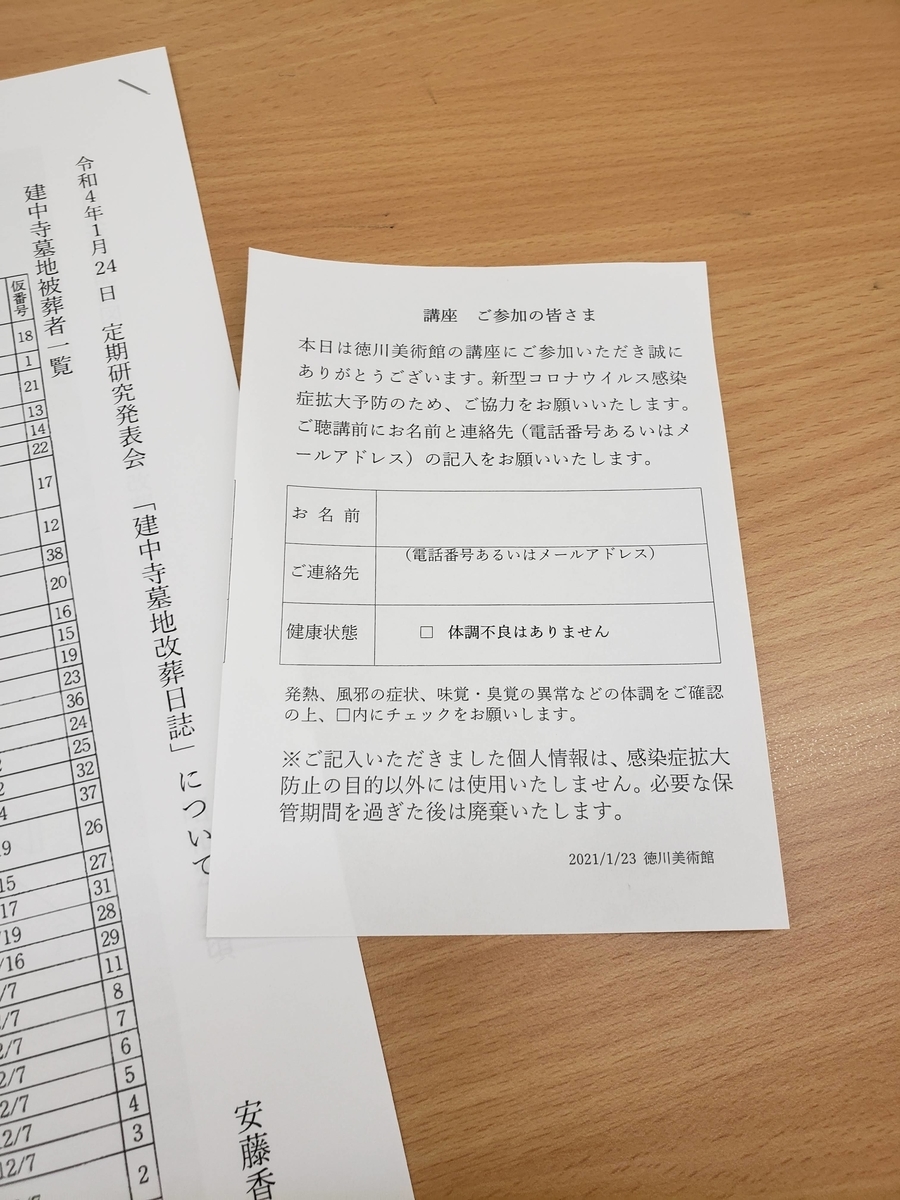 令和4年1月24日 定期研究発表会 「建中寺墓地改葬日誌」について
安藤香
建中寺墓地被葬者一覧
仮番号
18
1
21
13
14
22
17
12
38
20
16
15
19
23
36
24
25
32
37
26
27
31
28
29
11
8
7
6
5
4
3
2
講座 ご参加の皆さま
本日は徳川美術館の講座にご参加いただき誠に
ありがとうございます。新型コロナウイルス感染
症拡大予防のため、ご協力をお願いいたします。
ご聴講前にお名前と連絡先(電話番号あるいはメ
ールアドレス)の記入をお願いいたします。
お名前
ご連絡先 (電話番号あるいはメールアドレス)
健康状態 □ 体調不良はありません
発熱、風邪の症状、味覚・臭覚の異常などの体調をご確認
の上、□内にチェックをお願いします。
※ご記入いただきました個人情報は、感染症拡大
防止の目的以外には使用いたしません。必要な保
管期間を過ぎた後は廃棄いたします。
2021/1/23 徳川美術館